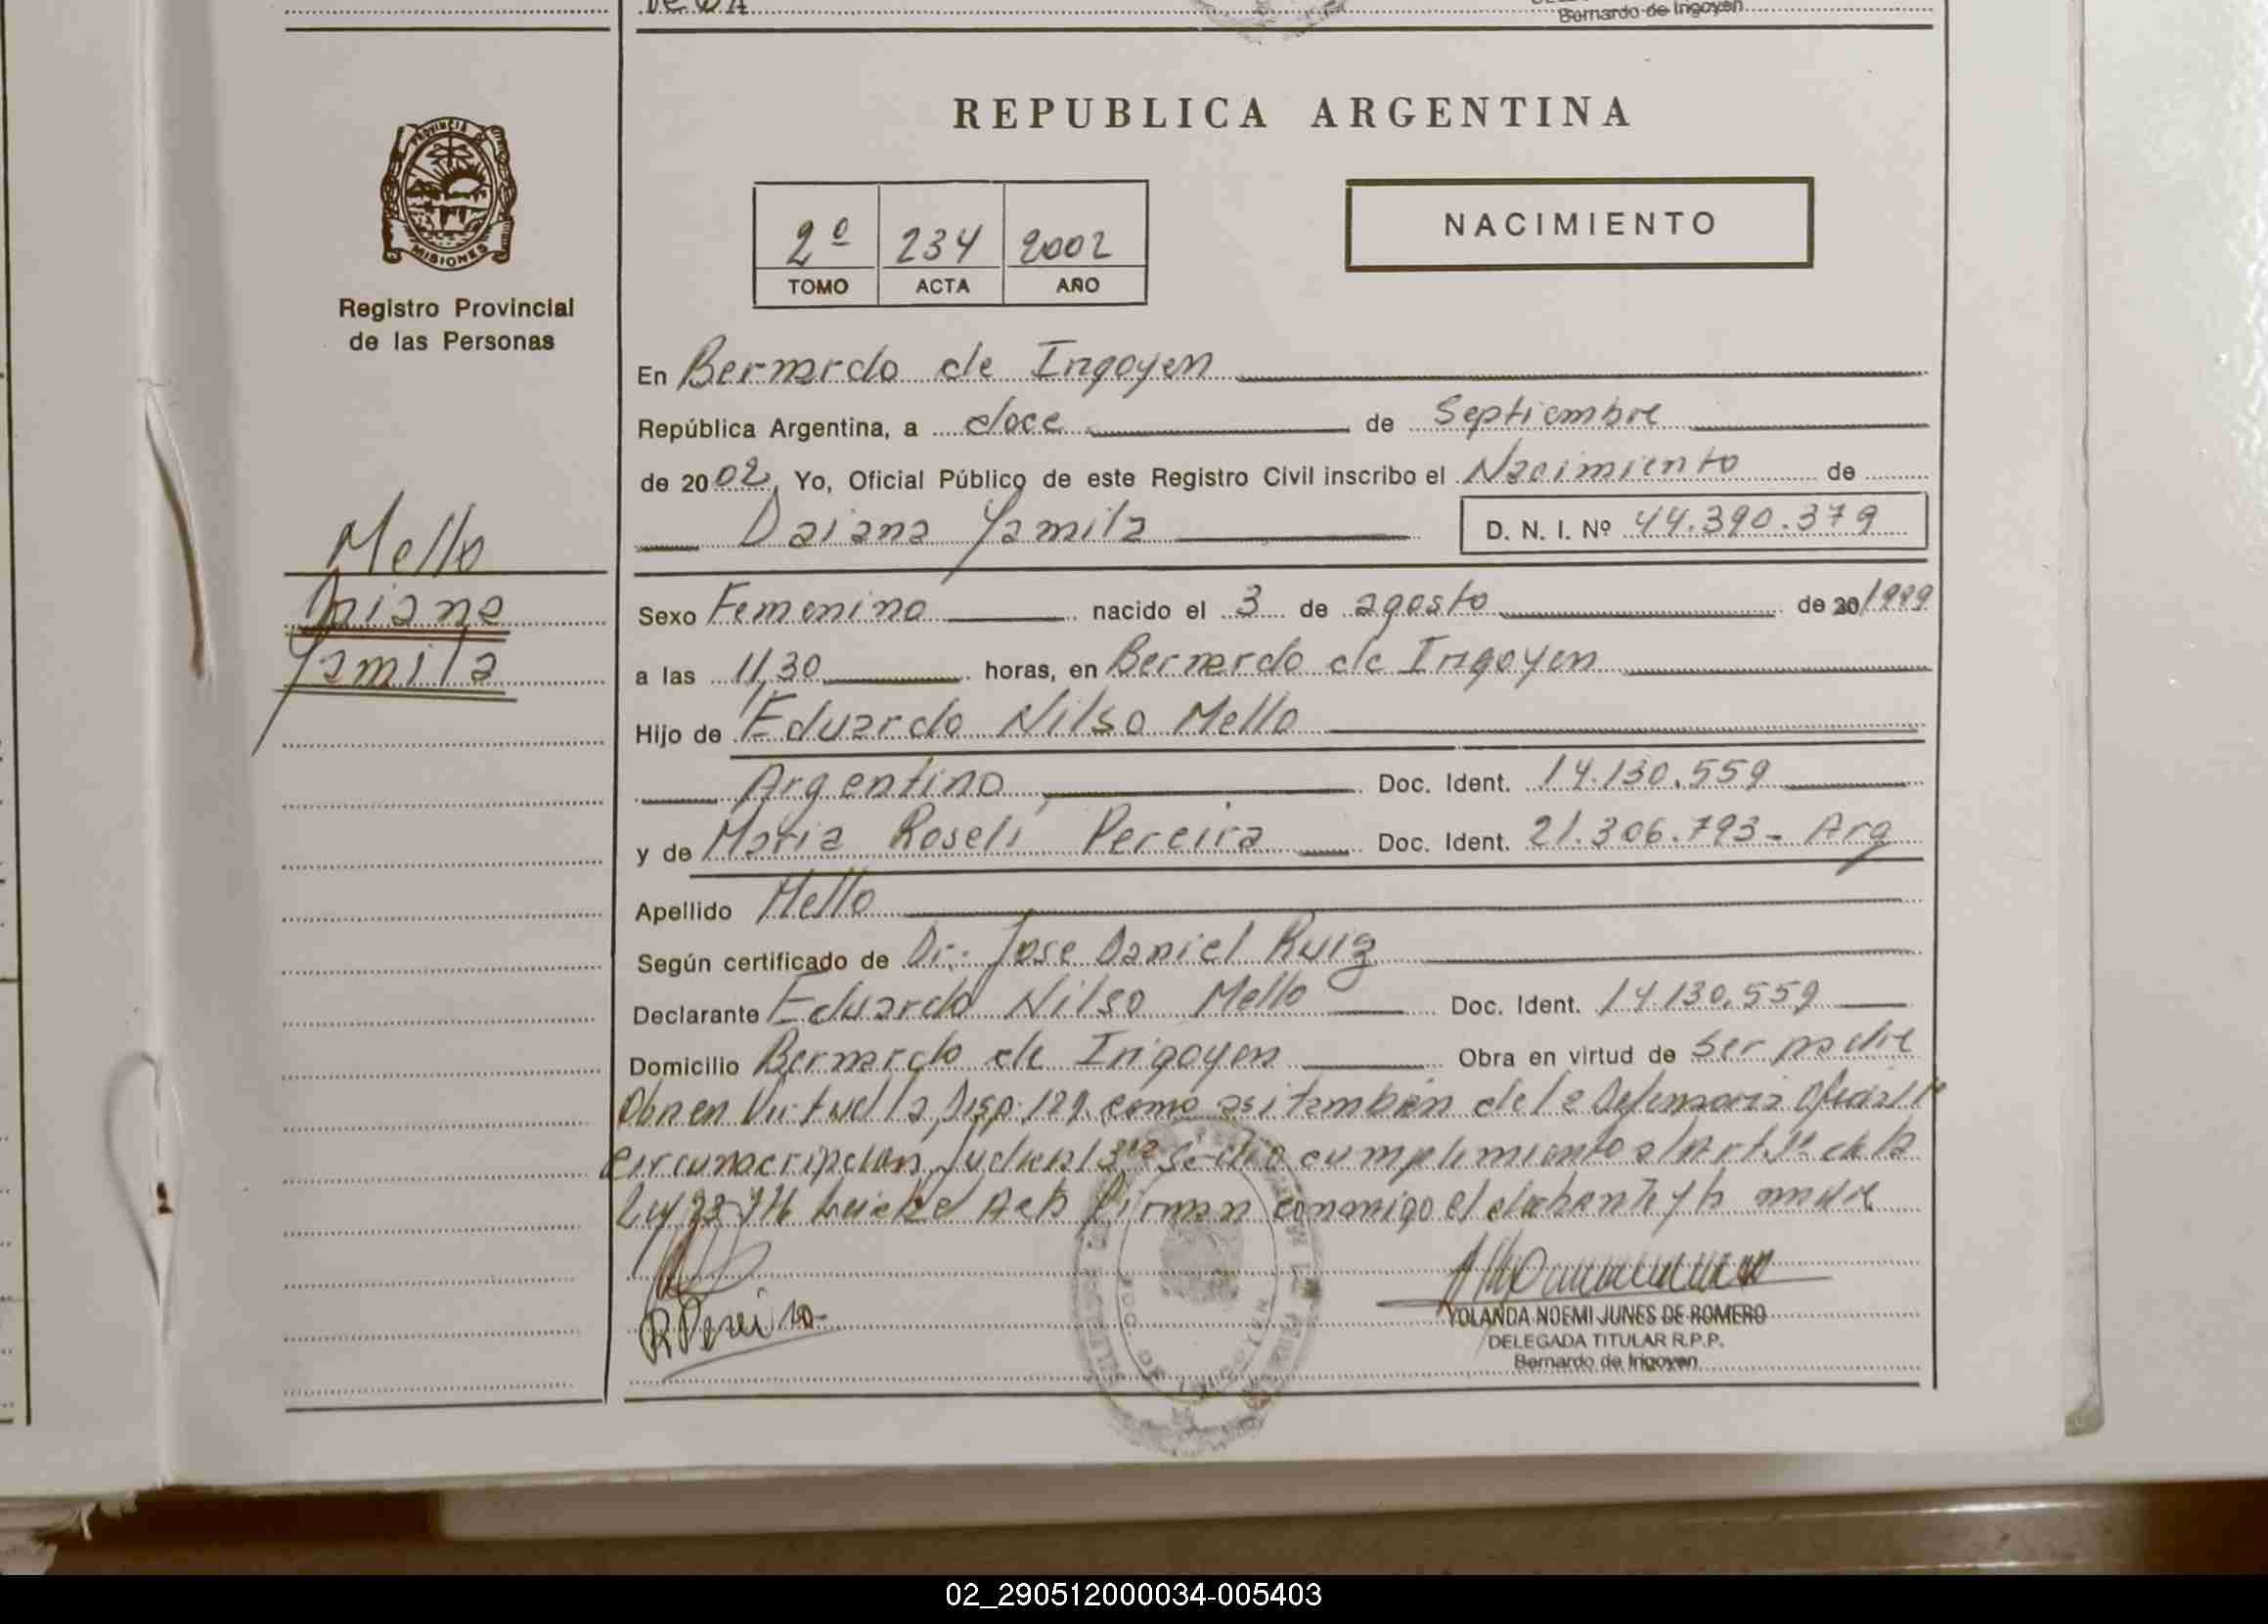 Bernardo de Irigoyen
REPUBLICA ARGENTINA
PROVINCIA DE
MISIONES
Registro Provincial
de las Personas
2º 234 2002
TOMO ACTA AÑO
NACIMIENTO
Mello
Daiana
Yamila
En Bernardo de Irigoyen
República Argentina, a doce de Septiembre
de 2002, Yo, Oficial Público de este Registro Civil inscribo el Nacimiento de
Daiana Yamila D. N. I. Nº 44.390.379
Sexo Femenino nacido el 3 de agosto de 20/1999
a las 11,30 horas, en Bernardo de Irigoyen
Hijo de Eduardo Nilso Mello
Argentino Doc. Ident. 14.130.559
y de Maria Roseli Pereira Doc. Ident. 21.306.793- Arg
Apellido Mello
Según certificado de Dr. Jose Daniel Ruiz
Declarante Eduardo Nilso Mello Doc. Ident. 14.130.559
Domicilio Bernardo de Irigoyen Obra en virtud de ser padre
Obra en Virtud la Disp. 129 como asi tambien de la Defensoria Oficial
Circunscripcion Judicial 3ra Se dio cumplimiento al Art 1º de la
Ley Leida el Acta firman conmigo el y la madre
R Pereira
YOLANDA NOEMI JUNES DE ROMERO
DELEGADA TITULAR R.P.P.
Bernardo de Irigoyen
02_290512000034-005403